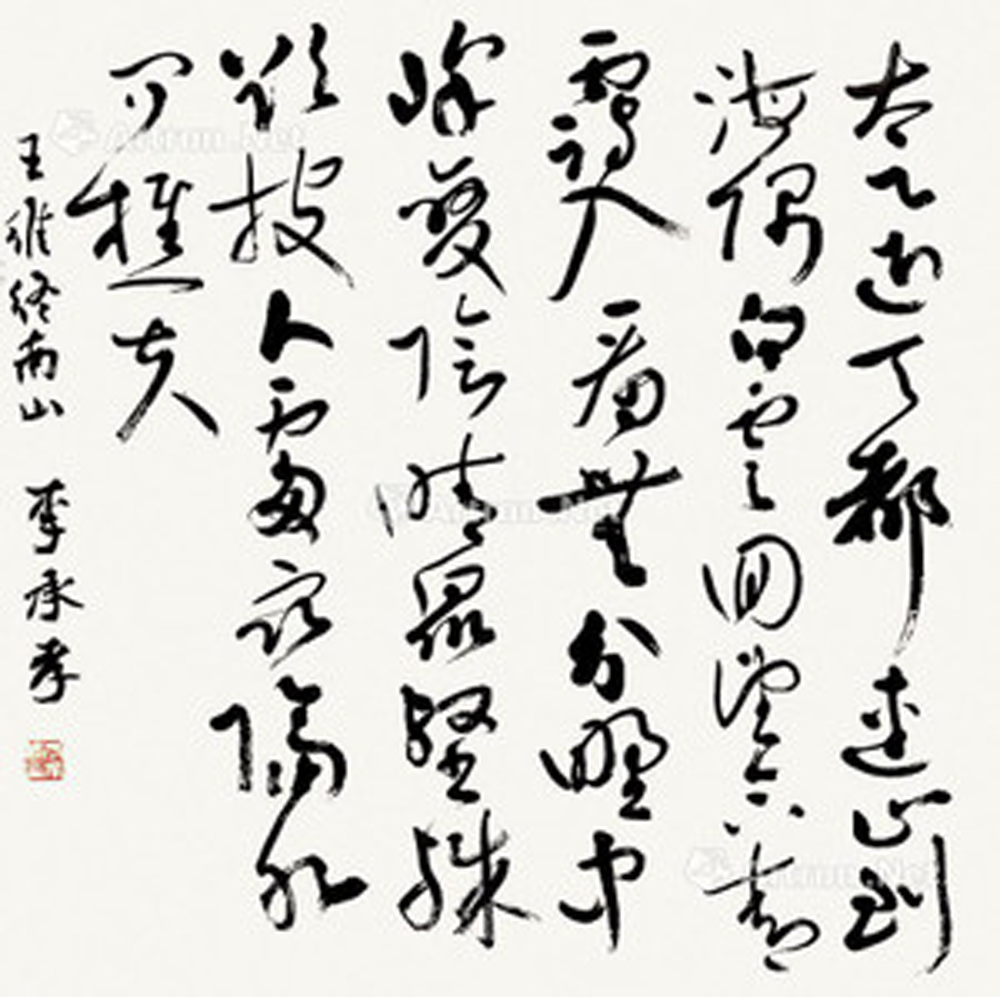 太乙近天都連山到
海隅白雲回望合青
靄入看無分野中
峰變陰晴眾壑殊
欲投人處宿隔水
問樵夫
王維終南山 李承孝
Artron.Net
Artron.Net
Artron.Net